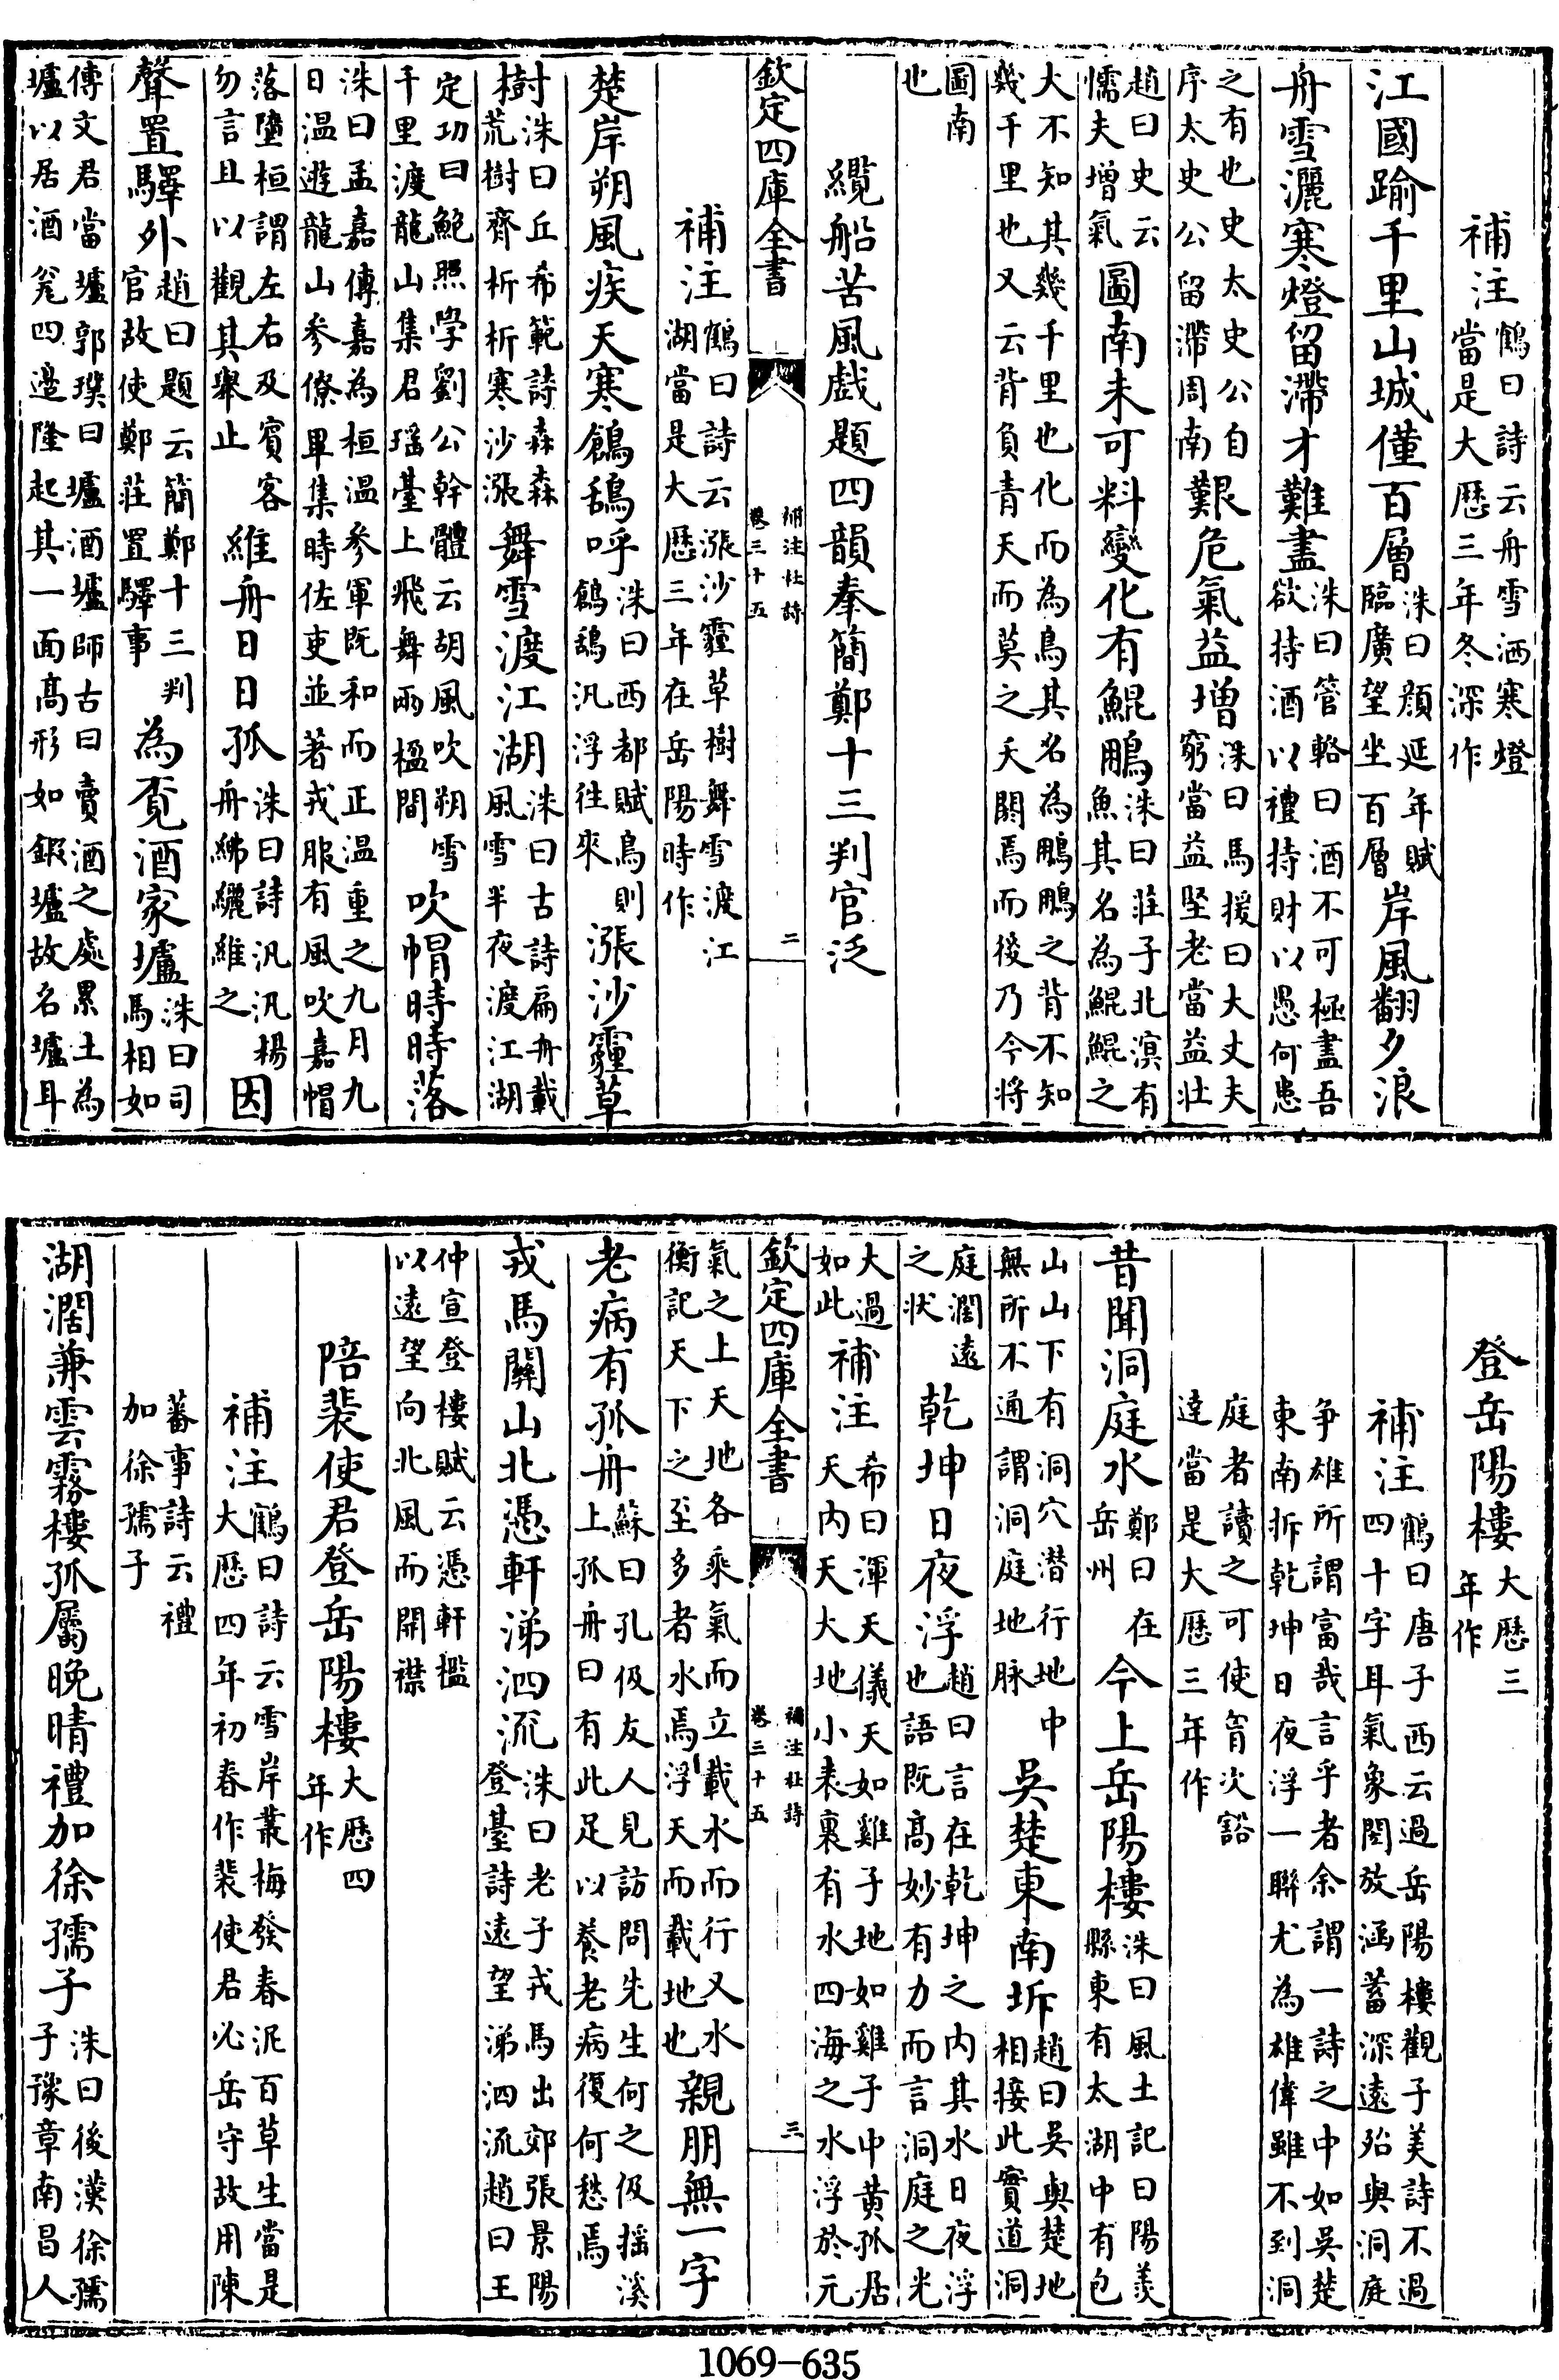 補注鶴曰詩云舟雪洒寒燈
當是大歷三年冬深作
江國踰千里山城僅百層洙曰顔延年賦
臨廣望坐百層岸風翻夕浪
舟雪灑寒燈留滯才難盡洙曰管輅曰酒不可極盡吾
欲持酒以禮持財以愚何患
之有也史太史公自
序太史公留滯周南艱危氣益增洙曰馬援曰大丈夫
窮當益堅老當益壯
趙曰史云
懦夫增氣圖南未可料變化有鯤鵬洙曰莊子北溟有
魚其名為鯤鯤之
大不知其幾千里也化而為鳥其名為鵬鵬之背不知
幾千里也又云背負青天而莫之夭閼焉而後乃今將
圖南
也
纜船苦風戲題四韻奉簡鄭十三判官泛
欽定四庫全書
補注杜詩
卷三十五
二
補注鶴曰詩云漲沙霾草樹舞雪渡江
湖當是大歷三年在岳陽時作
楚岸朔風疾天寒鶬鴰呼洙曰西都賦鳥則
鶬鴰汎浮往來漲沙霾草
樹洙曰丘希範詩森森
荒樹齊析析寒沙漲舞雪渡江湖洙曰古詩扁舟載
風雪半夜渡江湖
定功曰鮑照學劉公幹體云胡風吹朔雪
千里渡龍山集君瑶臺上飛舞兩楹間吹帽時時落
洙曰孟嘉傳嘉為桓温參軍既和而正温重之九月九
日温遊龍山參僚畢集時佐吏並著戎服有風吹嘉帽
落墮桓謂左右及賓客
勿言且以觀其舉止維舟日日孤洙曰詩汎汎楊
舟紼纚維之因
聲置驛外趙曰題云簡鄭十三判
官故使鄭莊置驛事為覔酒家壚洙曰司
馬相如
傳文君當壚郭璞曰壚酒壚師古曰賣酒之處累土為
壚以居酒瓮四邊隆起其一面髙形如鍛壚故名壚耳
登岳陽樓大歷三
年作
補注鶴曰唐子西云過岳陽樓觀子美詩不過
四十字耳氣象閎放涵蓄深遠殆與洞庭
争雄所謂富哉言乎者余謂一詩之中如吳楚
東南拆乾坤日夜浮一聯尤為雄偉雖不到洞
庭者讀之可使胷次豁
達當是大歷三年作
昔聞洞庭水鄭曰在
岳州今上岳陽樓洙曰風土記曰陽羨
縣東有太湖中有包
山山下有洞穴潜行地中
無所不通謂洞庭地脉吳楚東南坼趙曰吳與楚地
相接此實道洞
庭濶遠
之狀乾坤日夜浮趙曰言在乾坤之内其水日夜浮
也語既髙妙有力而言洞庭之光
大過
如此補注希曰渾天儀天如雞子地如雞子中黄孤居
天内天大地小表裏有水四海之水浮於元
欽定四庫全書
補注杜詩
卷三十五
三
氣之上天地各乘氣而立載水而行又水
衡記天下之至多者水焉浮天而載地也親朋無一字
老病有孤舟蘇曰孔伋友人見訪問先生何之伋摇溪
上孤舟曰有此足以養老病復何愁焉
戎馬關山北憑軒涕泗流洙曰老子戎馬出郊張景陽
登臺詩遠望涕泗流趙曰王
仲宣登樓賦云憑軒檻
以遠望向北風而開襟
陪裴使君登岳陽樓大歷四
年作
補注鶴曰詩云雪岸叢梅發春泥百草生當是
大歷四年初春作裴使君必岳守故用陳
蕃事詩云禮
加徐孺子
湖濶兼雲霧樓孤屬晚晴禮加徐孺子洙曰後漢徐孺
子豫章南昌人
1069-635